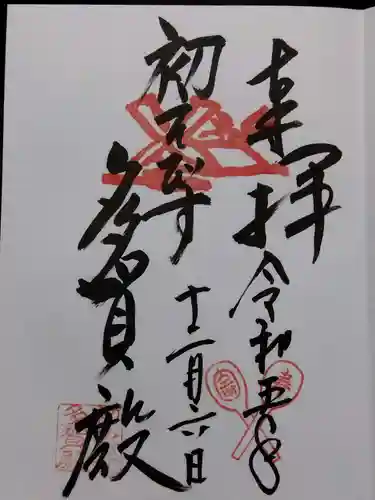 奉拝 令和五年
十二月六日
初えびす
多賀殿